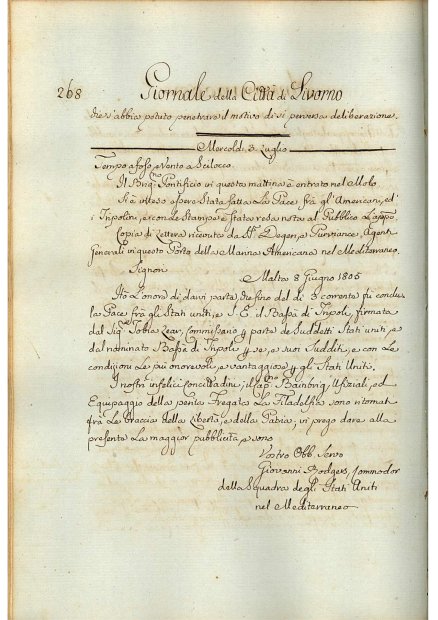 268 Giornale della Città di Livorno
che s'abbia potuto penetrare il motivo di sì perversa deliberazione.
Mercoldì 3. Luglio
Tempo afoso, e Vento a Scilocco.
Il Brig.no Pontificio di questa mattina è entrato nel Molo
Si è inteso essere stata fatta La Pace frà gl'Americani, ed
i Tripolini, e con Le Stampe è Stata resa nota al Pubblico L'app.e
Copia di Lettera ricevuta da SS.ri Degen, e Purviance, Agenti
Generali in questo Porto della Marina Americana nel Mediterraneo.
Signori
Malta 8 Giugno 1805
Ho L'onore di darvi parte, che fino del dì 3 corrente fù conclusa
la Pace frà gli Stati uniti, e S. E. il Bassà di Tripoli, firmata
dal Sig.re Tobia Lear, Commissario p parte de Suddetti Stati uniti, e
dal nominato Bassà di Tripoli p se, e suoi Sudditi, e con Le
Condizioni Le più onorevoli, e vantaggiose p gli Stati Uniti.
I nostri infelici Concittadini, il Cap.no Bainbrig, Ufiziali, ed
Equipaggio della persa Fregata La Filadelfia sono ritornati
frà Le braccia della Libertà, e della Patria, vi prego dare alla
presente La maggior pubblicità, e sono
Vostro Obb. Servo
Giovanni Rodgers, Commodor
della Squadra degli Stati Uniti
nel Mediterraneo